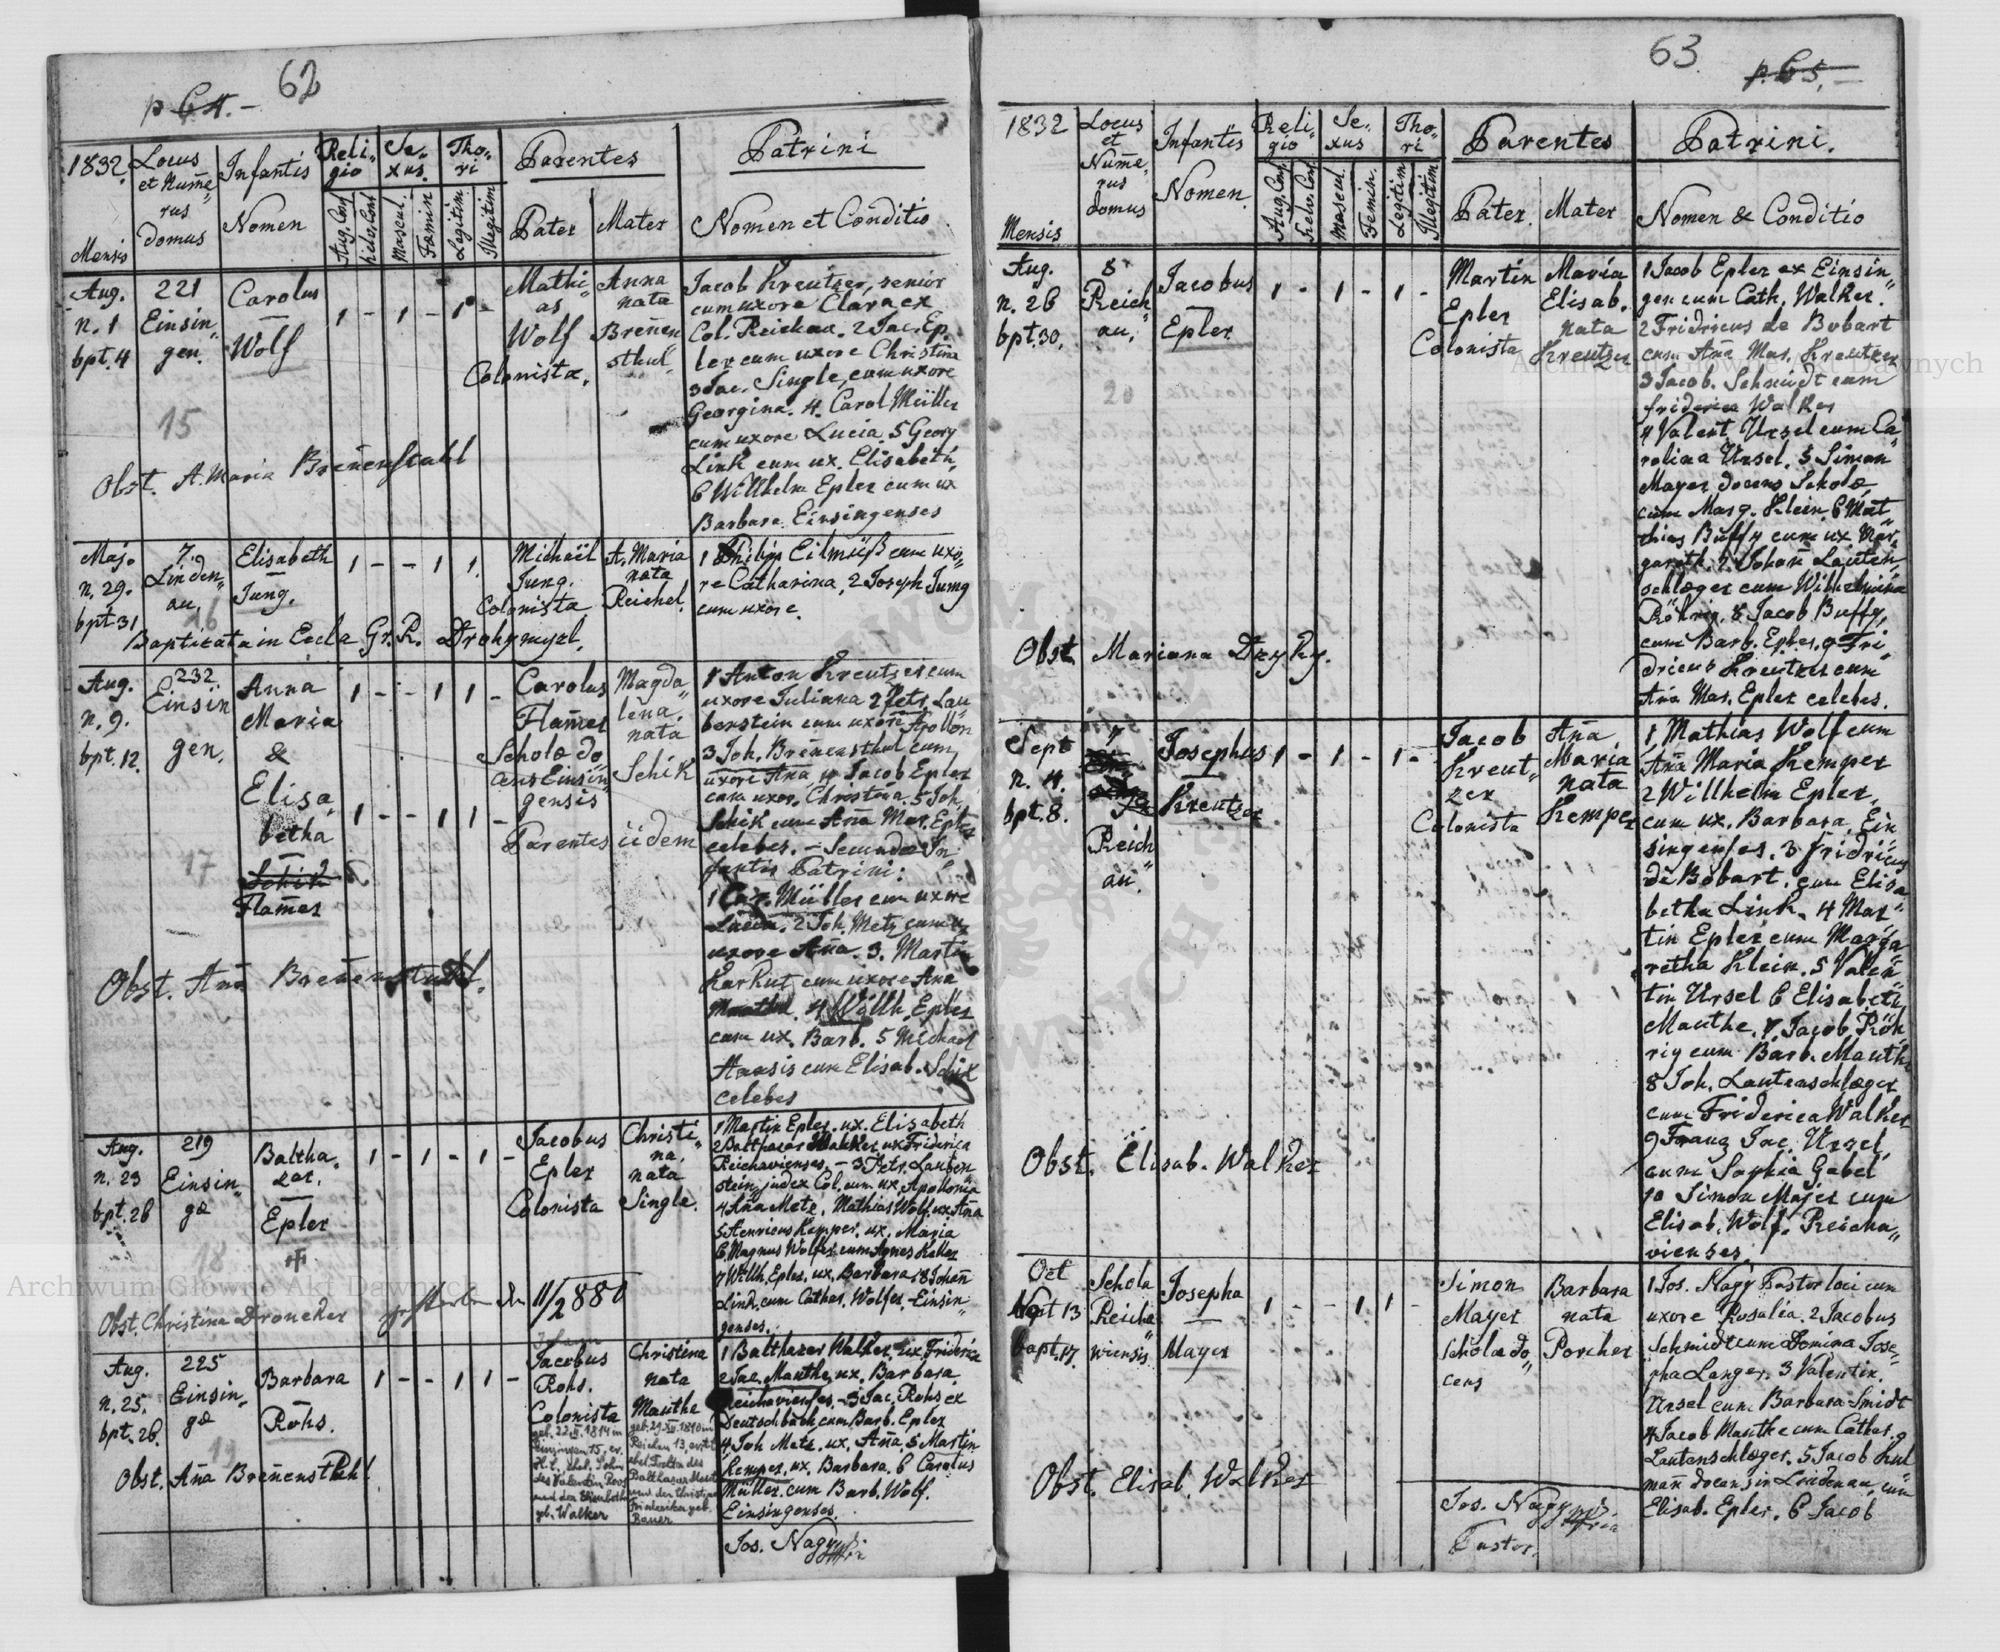 62
p 64.-
1832.
Mensis
Locus
et Nume
rus
domus
Infantis
Nomen
Reli-
gio
Aug. Conf
Helv. Conf
Se-
xus.
Mascul.
Fæmin
Tho-
ri
Legitim
Illegitim
Parentes
Pater
Mater
Patrini
Nomen et Conditio
Aug.
n. 1
bpt. 4
221
Einsin
gen.
Carolus
Wolf
1 - 1 - 1 -
Mathi
as
Wolf
Colonista.
Anna
nata
Breñen
sthul
Jacob Kreutzer, senior
cum uxore Clara ex
Col. Reichau. 2 Jac. Ep.
ler cum uxore Christina
3 Jac. Single, cum uxore
Georgina. 4. Carol Müller
cum uxore Lucia. 5 Georg
Link cum ux. Elisabeth,
6 Willhelm Epler cum ux
Barbara Einsingenses
15
Obst. A. Maria Breñenstahl
Majo
n. 29.
bpt 31
7.
Linden
au.
Elisabeth
Jung.
1 - - 1 1
Michaël
Jung.
Colonista
A. Maria
nata
Reichel.
1 Philipp Eilmüß cum uxo
re Catharina, 2 Joseph Jung
cum uxore.
16
Baptizata in Eccla Gr. R. Drohymyzl.
Aug.
n. 9.
bpt. 12.
232
Einsin
gen.
Anna
Maria
&
Elisa
betha
Schik
Flam̃er
1 - - 1 1 -
1 - - 1 1 -
Carolus
Flam̃er
Scholæ do
cens Einsin
gensis
Parentes iidem
Magda
lena.
nata
Schik
1 Anton Kreutzer cum
uxore Juliana 2 Petr. Lau
benstein cum uxore Apollon
3 Joh. Breñensthul cum
uxore Ana 4 Jacob Epler
cum uxor. Christina. 5 Joh.
Schik cum Ana Mar. Epler
celebes. - Secundæ In
fantis Patrini:
1 Car. Müller cum uxore
Lucia. 2 Joh. Metz cum
uxore Aña. 3. Martin
Karkut cum uxore Ana
4 Willh. Epler
cum ux. Barb. 5 Michael
Haasis cum Elisab. Schik
celebes
17
Obst. Añ Breñenstuhl.
Aug.
n. 23
bpt. 26
219
Einsin
gæ
Baltha.
zar.
Epler
1 - 1 - 1 -
Jacobus
Epler
Colonista
Christi
na.
nata
Single.
1 Martin Epler. ux. Elisabeth
2 Balthasar Walker ux Friderica
Reichavienses. - 3 Petr. Lauben
stein judex Col. cum ux. Apollonia
4 Aña Metz, Mathias Wolf, ux Aña
5 Henricus Kemper, ux. Maria
6 Magnus Wolfer cum Agnes Keller
7 Willh. Epler. ux. Barbara. 8 Johañ
Link cum Cathar. Wolfer. Einsin
genses.
18
Obst. Christina Droncker gestorben den 11/2 880
Aug.
n. 25.
bpt. 26.
225
Einsin
gæ
Barbara
Röhs.
1 - - 1 1 -
Jacobus
Rohs.
Colonista
Christina
nata
Mauthe
1 Balthazar Walker, ux. Frideric
2 Jac. Mauthe, ux. Barbara.
Reichavienses. - 3 Jac. Rohs ex
Deutschbach cum Barb. Epler
4 Joh Metz. ux. Aña. 5 Martin
Kemper, ux. Barbara. 6 Carolus
Müller. cum Barb. Wolf.
Einsingenses.
geb. Walker
Bauer
19
Obst. Aña Breñensthl
Jos. Nagy
63.
p. 65.
1832
Mensis
Locus
et
Nume
rus
domus
Infantis
Nomen.
Reli-
gio
Aug. Conf
Helv. Conf
Se-
xus
Mascul.
Femin.
Tho-
ri
Legitim
Illegitim
Parentes
Pater.
Mater
Patrini.
Nomen & Conditio
Aug.
n. 26
bpt. 30.
8
Reich
au.
Jacobus
Epler
1 - 1 - 1 -
Martin
Epler
Colonista
Maria
Elisab.
nata
Kreutzer
1 Jacob Epler ex Einsin
gen cum Cath. Walker.
2 Fridricus de Bobart
cum Añ Mar. Kreutzer
3 Jacob. Schmidt cum
friderica Walker
4 Valent. Ursel cum Ca
rolina Ursel. 5 Simon
Mayer docens Scholæ,
cum Marg. Klein 6 Mat
thias Buffy cum ux Mar.
gareth. 7 Johañ Lauten
schlæger cum Wilhelmina
Röhrig. 8 Jacob Buffy,
cum Barb. Epler. 9 Fri
dricus Kreutzer cum
Aña Mar. Epler celebes.
20
Obst. Mariana Dzyky.
Sept
n. 4.
bpt. 8.
7
Reich
au.
Josephus
Kreutzer
1 - 1 - 1 -
Jacob
Kreut
zer
Colonista
Aña
Maria
nata
Kemper
1, Mathias Wolf cum
Aña Maria Kemper
2 Willhelm Epler,
cum ux. Barbara, Ein
singenses. 3 fridricus
de Bobart. cum Elisa
betha Link. 4 Mar
tin Epler cum Marga
retha Klein. 5 Valen
tin Ursel 6 Elisabeth
Mauthe. 7 Jacob Röh
rig cum Barb. Mauthe
8 Joh. Lautenschlæger
cum Friderica Walker
9 Franz Jac. Ursel,
cum Sophia Gabel
10 Simon Majer cum
Elisab. Wolf. Reicha
vienses.
Obst. Elisab. Walker
Oct
Nat 13
bapt. 17.
Schola
Reicha
wiensis
Josepha
Mayer
1 - - 1 1 -
Simon
Mayer
Schola do
cens
Barbara
nata
Porcher
1 Jos. Nagy Pastor loci cum
uxore Rosalia. 2 Jacobus
Schmidt cum Domina Jose
pha Langer. 3 Valentin.
Ursel cum Barbara Smidt
4 Jacob Mautke cum Cathar.
Lautenschlæger. 5 Jacob Kul
mañ docens in Lindenau, cum
Elisab. Epler. 6 Jacob
Obst. Elisab. Walker
Jos. Nagy
Pastor.
Archiwum Główne Akt Dawnych
Archiwum Główne Akt Dawnych